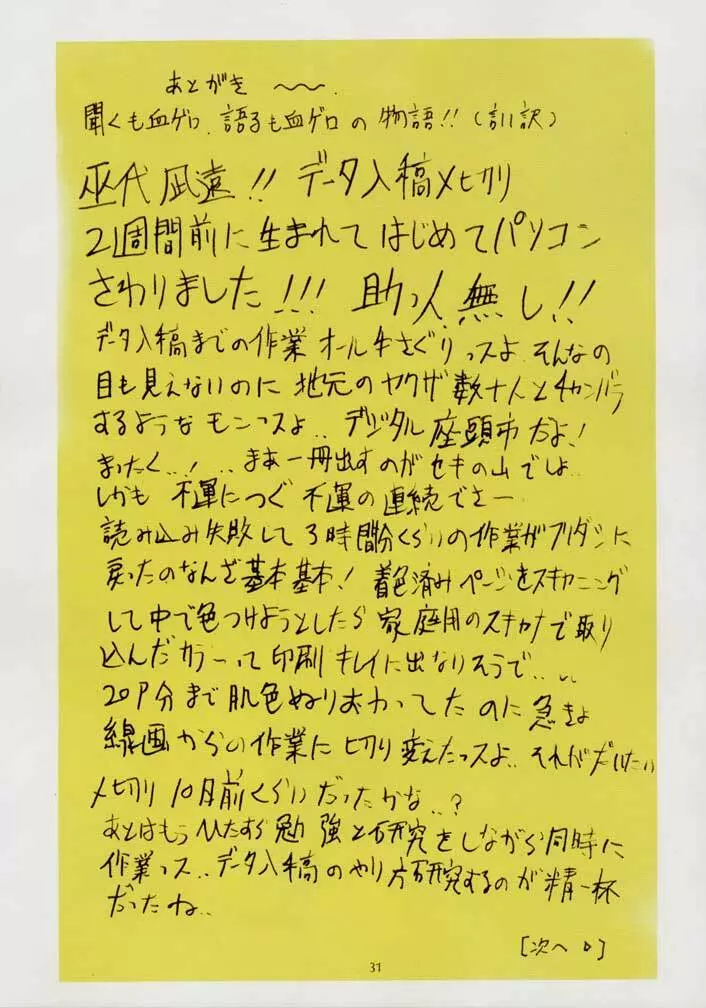 あとがき 〜〜.
聞くも血ゲロ、語るも血ゲロの物語!!(言い訳)
巫代凪遠!! データ入稿〆切り
2週間前に生まれてはじめてパソコン
さわりました!!! 助っ人、無し!!
データ入稿までの作業オール手さぐりっスよ、そんなの
目も見えないのに地元のヤクザ数十人とチャンバラ
するようなモンっスよ.. デジタル座頭市だよ!
まったく..! ..まあ一冊出すのがセキの山でしょ..
しかも不運につぐ不運の連続でさー
読み込み失敗して3時間分くらいの作業がフリダシに
戻ったのなんざ基本基本! 着色済みページをスキャニング
して中で色つけようとしたら家庭用のスキャナで取り
込んだカラーって印刷キレイに出なりそうで....
20P分まで肌色ぬりおわってたのに急きょ
線画からの作業に切り変えたっスよ.. それがだいたい
〆切り10日前くらいだったかな..?
あとはもうひたすら勉強と研究をしながら同時に
作業っス.. データ入稿のやり方研究するのが精一杯
だったね..
[次へ▷]
31